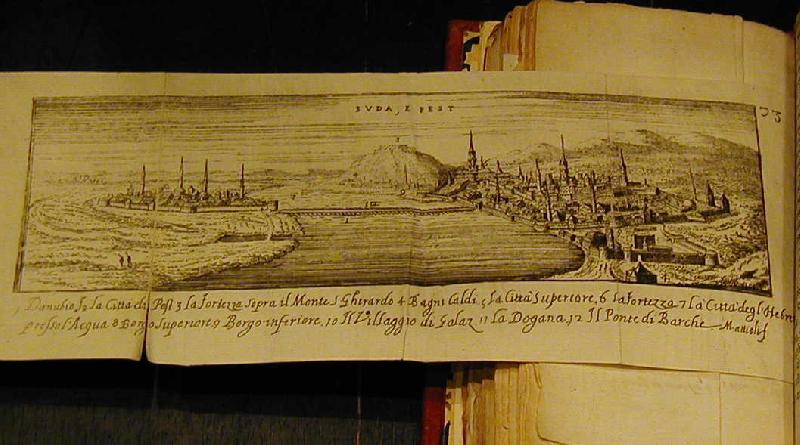 BUDA, E PEST
73
Danubio, 2 la Città di Pest 3 la fortezza sopra il Monte S Gherardo 4 Bagni Caldi 5 la Città Superiore, 6 la fortezza 7 la Città degl'Hebrei
presso l'Acqua 8 Borgo Superiore 9 Borgo inferiore, 10 Il Villaggio di Galaz 11 La Dogana, 12 Il Ponte di Barche